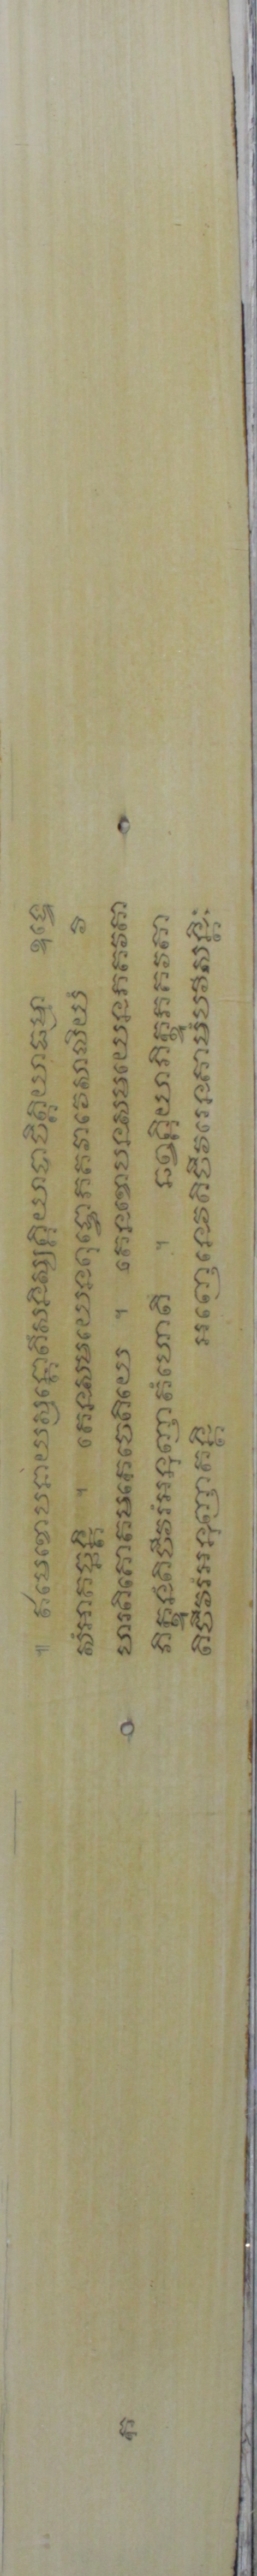 ៕ ឥមេខោបនាយស្មន្តោតឹសនិស្សគ្គិយាបាចិត្តិយាធម្មា ឧទ្ទេ
សំអាគច្ឆន្តិ ។ តេនសមយេនពុទ្ធោភគវាវេសាលិយំ វិ
ហរតិគោតមកេចេតិយេ ។ តេនខោបនសមយេនភគវតា
ភិក្ខូនំតិចីវរំអនុញ្ញាតំហោតិ ។ ឆព្វគ្គិយាភិក្ខូភគវតា
តិចីវរំអនុញ្ញាតន្តិ អញ្ញេនេវតិចីវរេនគាមំបវិសន្តិ
ក